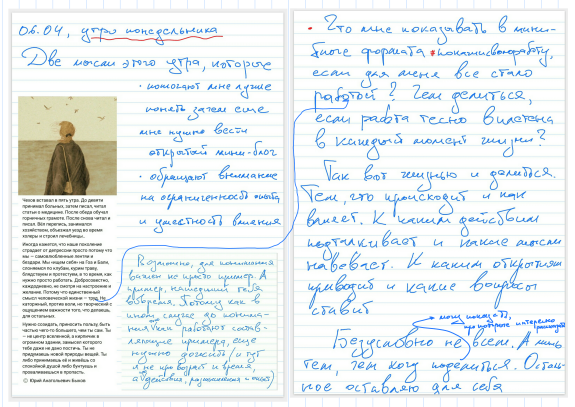 06.04, утро понедельника
Две мысли этого утра, которые
· помогают мне лучше
понять зачем еще
мне нужно вести
открытый мини-блог
· обращают внимание
на ограниченность опыта
и уместность влияния
Чехов вставал в пять утра. До девяти
принимал больных, затем писал, читал
статьи о медицине. После обеда обучал
горничных грамоте. После снова читал и
писал. Вел перепись, занимался
хозяйством, объезжал уезд во время
холеры и строил лечебницы.
Иногда кажется, что наше поколение
страдает от депрессии просто потому что
мы — самовлюбленные лентяи и
бездари. Мы ищем себя на Гоа и Бали,
слоняемся по клубам, курим траву,
бездумно и протестуем, в то время, как
нужно просто работать. Добросовестно,
каждодневно, не смотря на настроение и
желание. Потому что единственный
смысл человеческой жизни — труд. Не
каторжный, против воли, но творческий с
ощущением важности того, что делаешь,
для остальных.
Нужно созидать, приносить пользу, быть
частью чего-то большего, чем ты сам. Ты
- не центр вселенной, а кирпичик в
огромном здании, замысел которого
тебе даже не дано постичь. Ты не
придумаешь новой природы вещей. Ты
либо принимаешь её и живёшь со
спокойной душой либо бунтуешь и
проваливаешься в пропасть.
© Юрий Анатольевич Быков
Возможно, для понимания
важен не просто пример. А
пример, нашедший тебя
вовремя. Потому как в
ином случае до понима-
ния как работают состав-
ляющие примера, еще
нужно дожить (и тут
я не про возраст и время,
а действия, размышления и опыт)
• Что мне показывать в мини-
блоге формата #покажисвоюработу,
если для меня все стало
работой? Чем делиться,
если работа тесно вплетена
в каждый момент жизни?
Так вот жизнью и делиться.
Тем, что происходит и как
влияет. К каким действиям
подталкивает и какие мысли
навевает. К каким открытиям
приводит и какие вопросы
ставит
могу показать,
при повторе интересно
Безусловно не всем. А лишь
тем, чем хочу поделиться. Осталь-
ное оставляю для себя